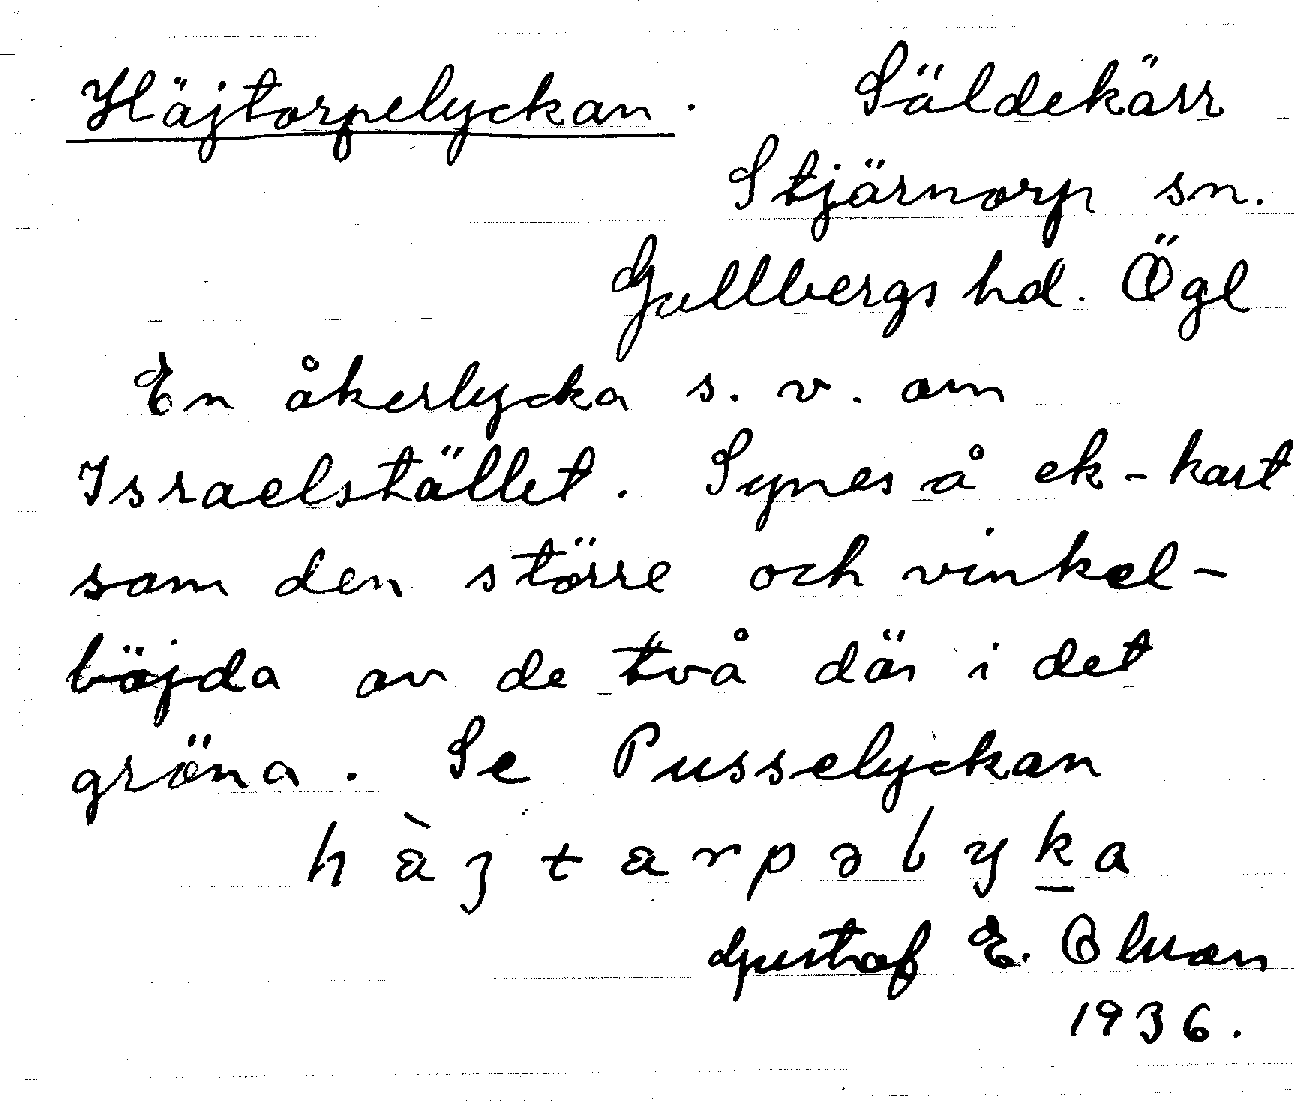 Häjtorpelyckan. Säldekärr
Stjärnorp sn.
Gullbergs hd. Ögl
En åkerlycka s. v. om
Israelstället. Synes å ek-kart
som den större och vinkel-
böjda av de två där i det
gröna. Se Pusselyckan
hàjtarpəlyka
Gustaf E. Olsson
1936.